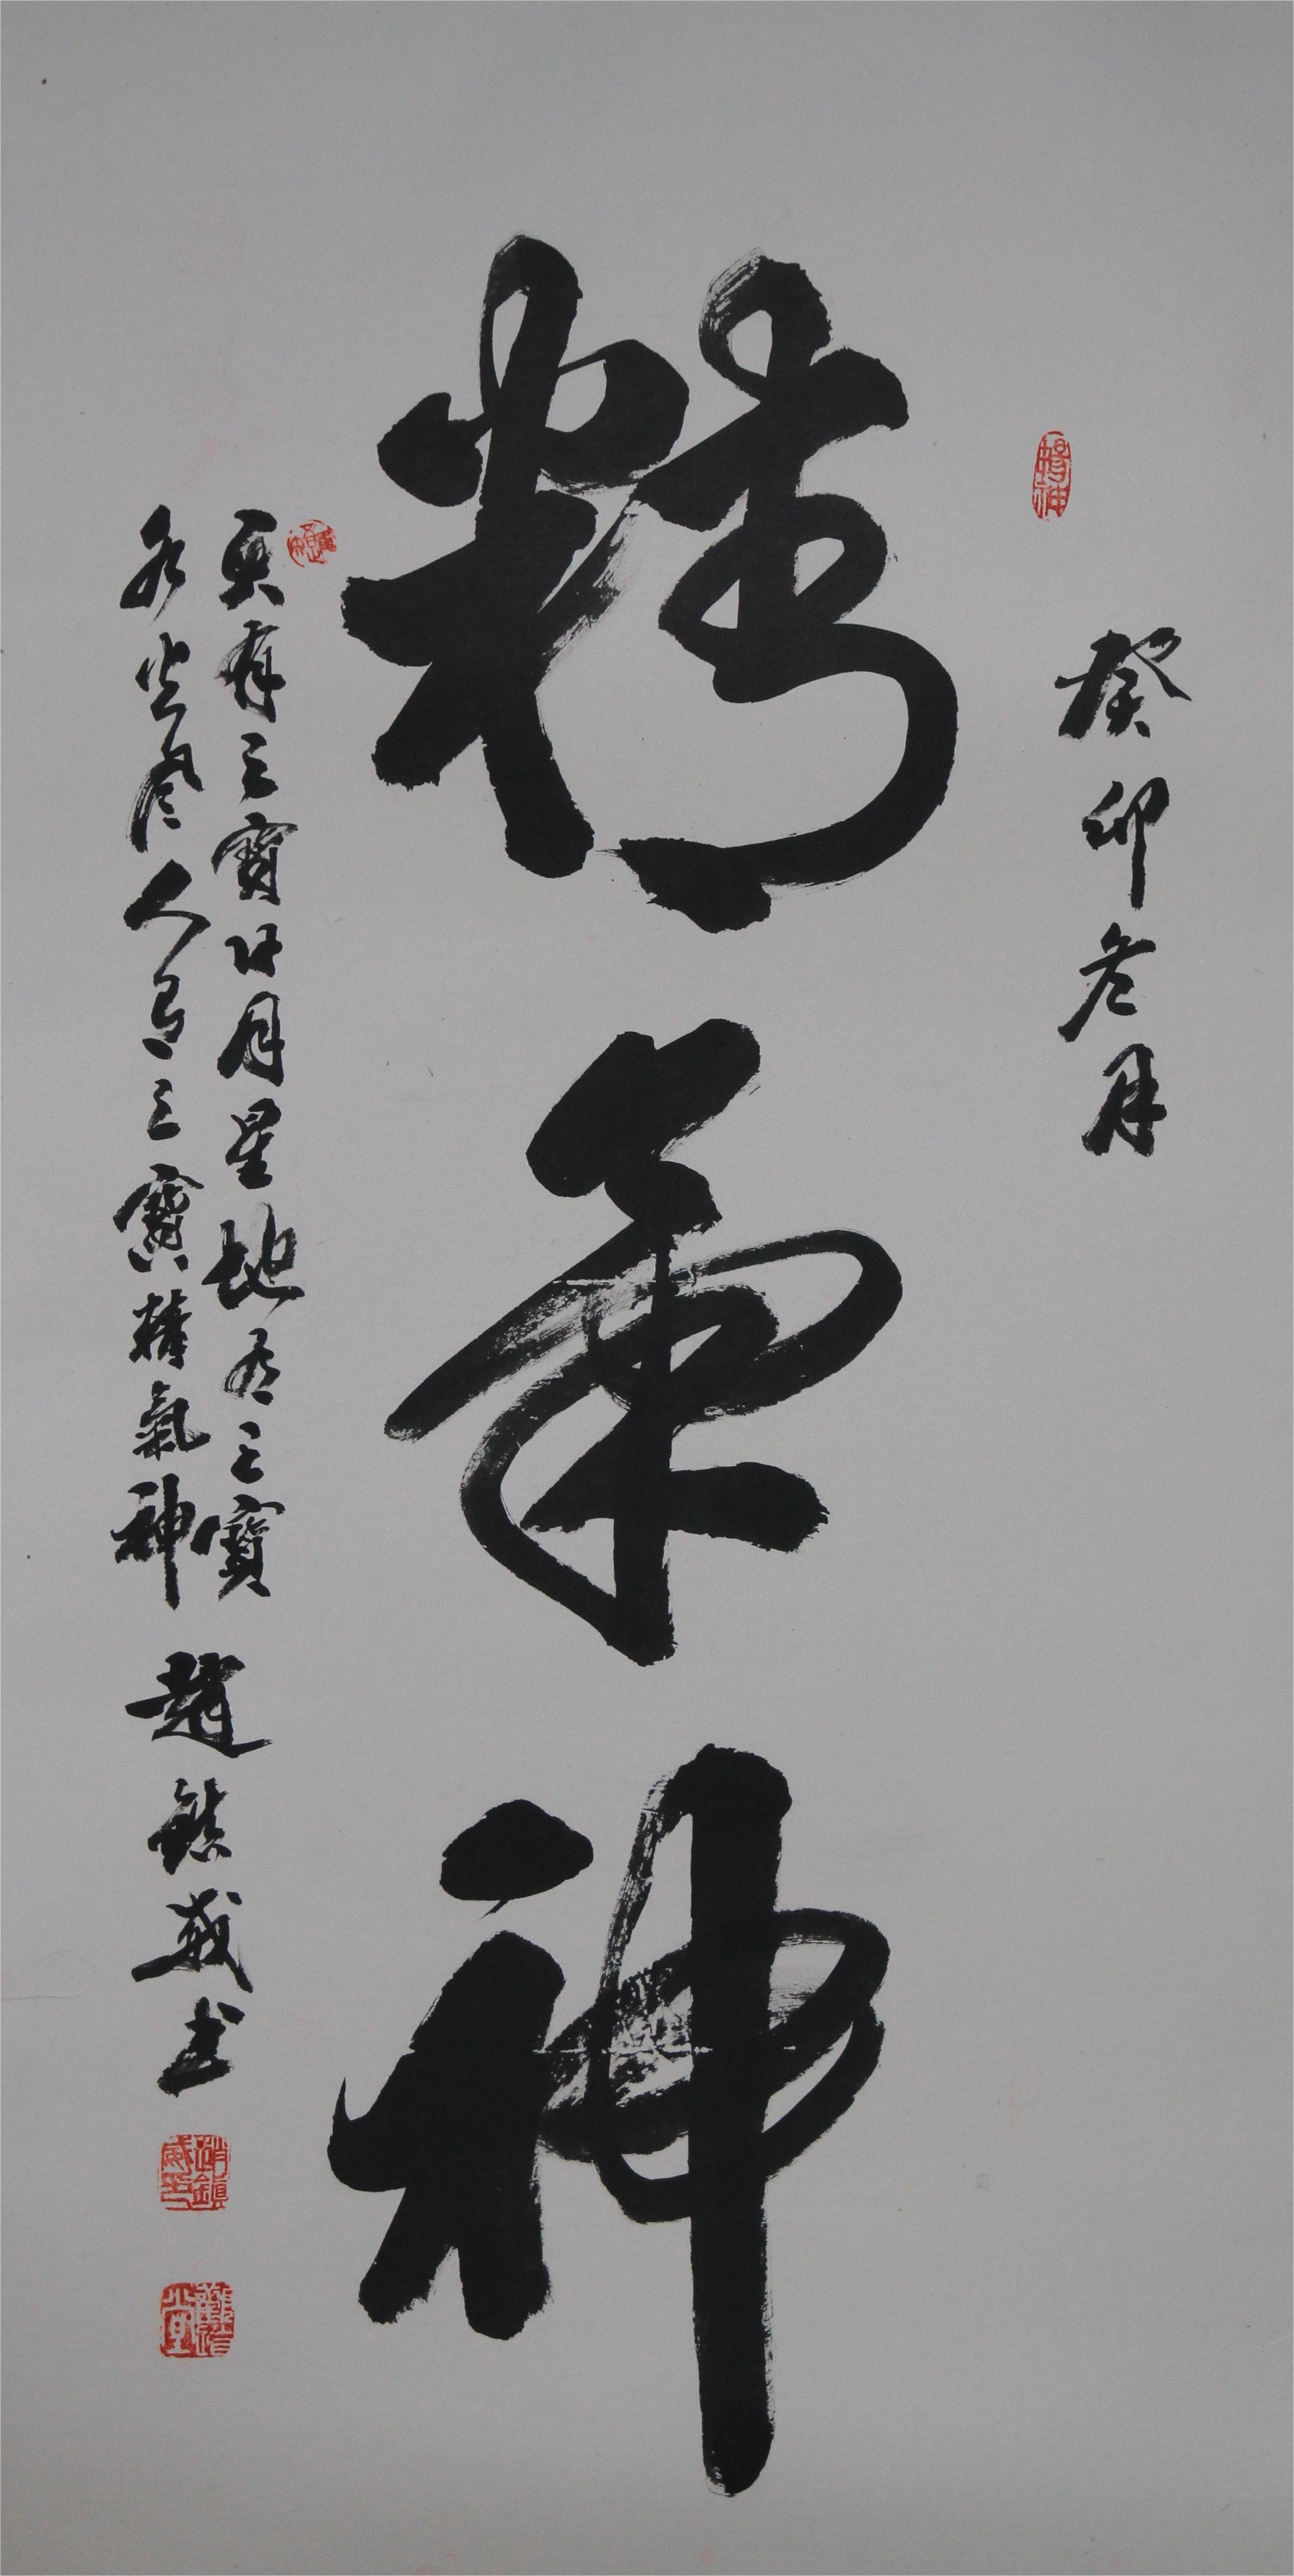 癸卯冬月
精氣神
天有三寶日月星地有三寶
水火風人有三寶精氣神
趙鎮威書
趙鎮威印